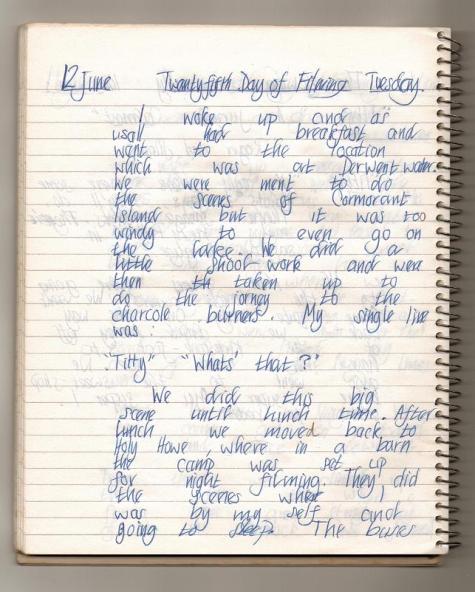 12 June Twentyfifth Day of Filming Tuesday.
I woke up and as
usall had breakfast and
went to the location
which was at Derwent water.
We were ment to do
the scenes of Cormorant
Island but it was too
windy to even go on
the Lake. We did a
little shoot work and were
then taken up to
do the jorney to the
charcole burners. My single line
was:
"Titty" "Whats' that?"
We did this big
scene until lunch time. After
lunch we moved back to
Holy Howe, where in a barn
the camp was set up
for night filming. They did
the scenes when I
was by my self and
going to sleep. The buses